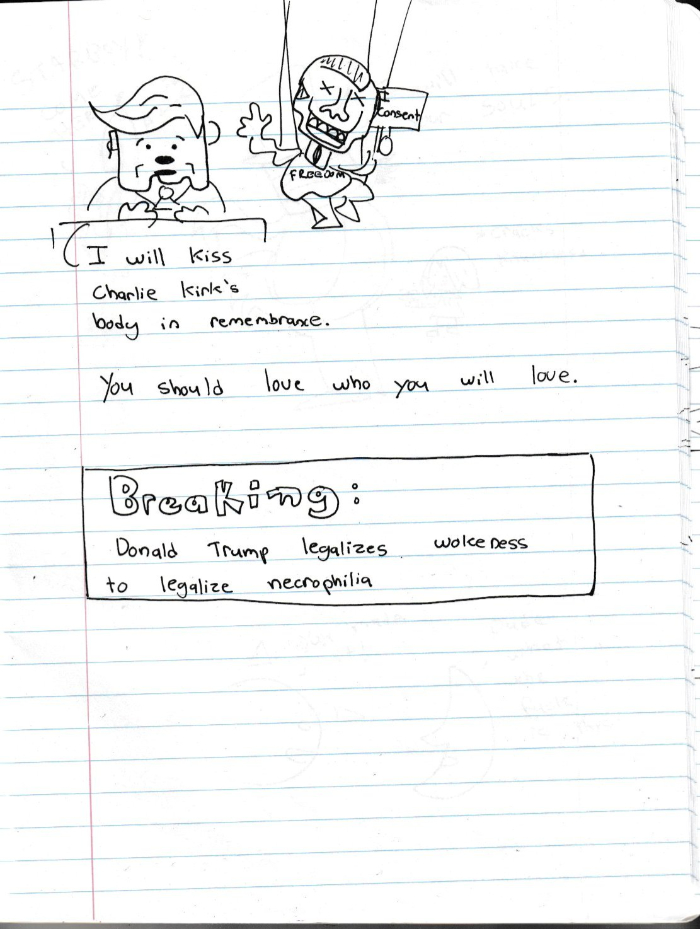 I
consent
FREEDOM
I will kiss
Charlie Kirk's
body in remembrance.
You should love who you will love.
Breaking:
Donald Trump legalizes wokeness
to legalize necrophilia